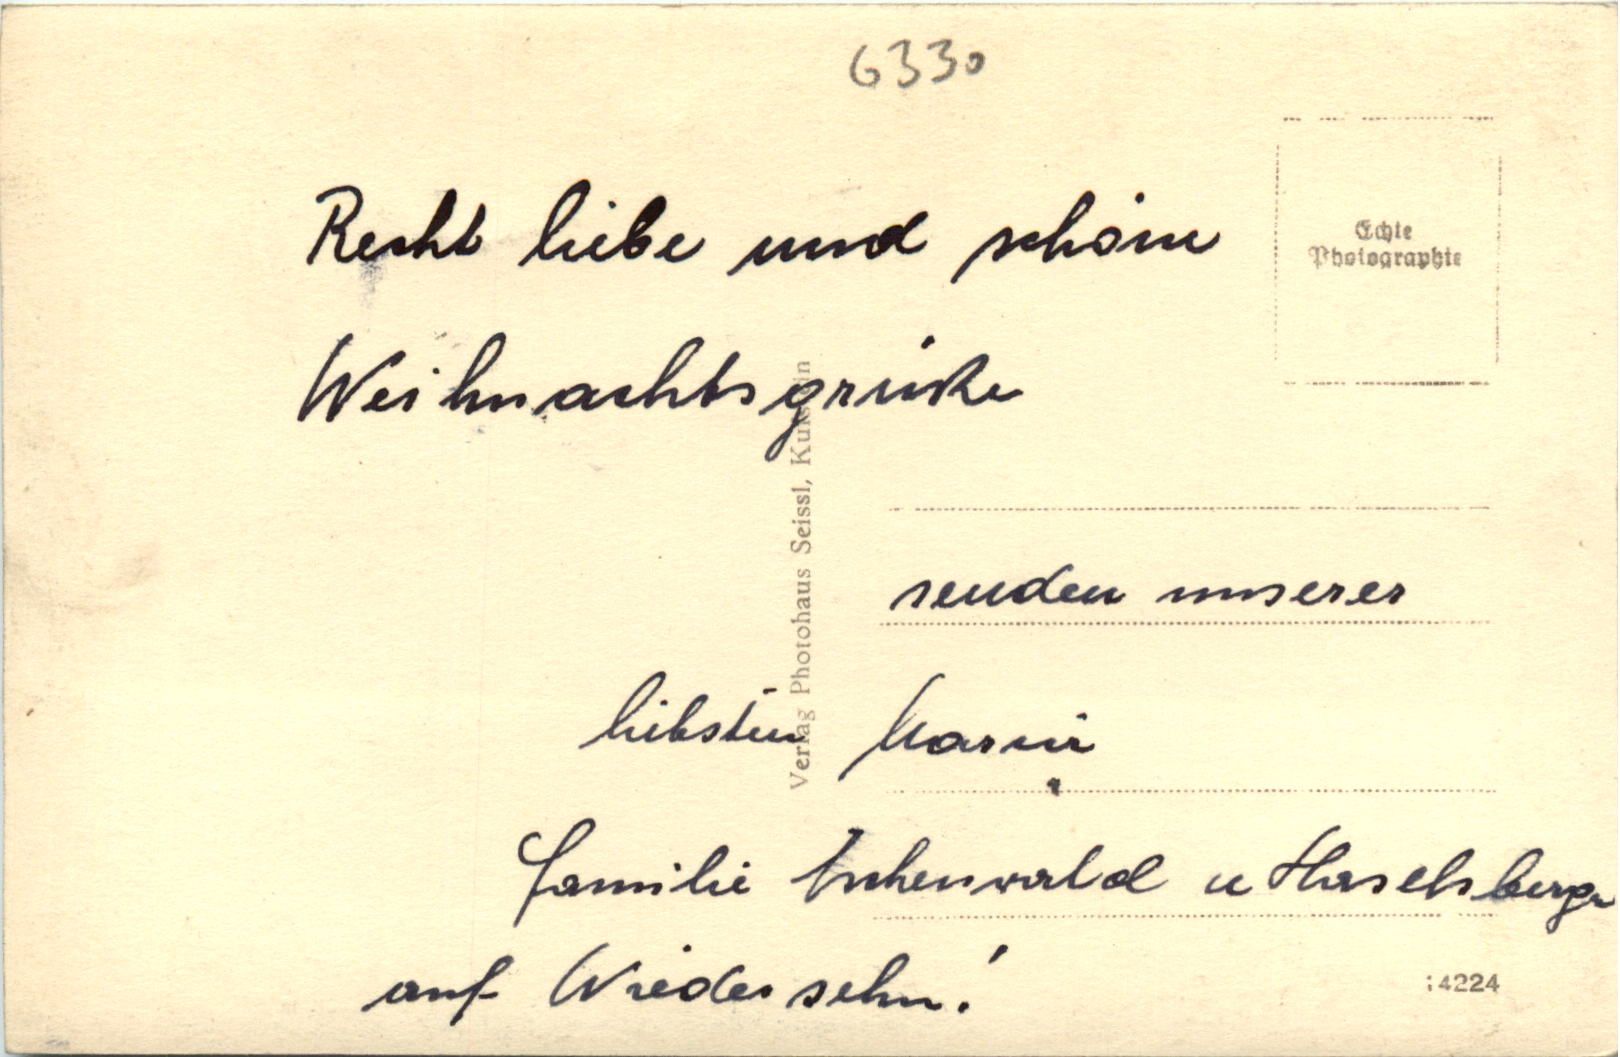 6330
Recht liebe und schöne
Echte
Photographie
Weihnachtsgrüße
Verlag Photohaus Seissl, Kufstein
senden unserer
liebsten
Familie u Haselsberger
auf Wiedersehn!
14224